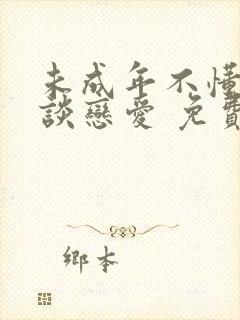 未成年不懂
談戀愛 免費
鄉本